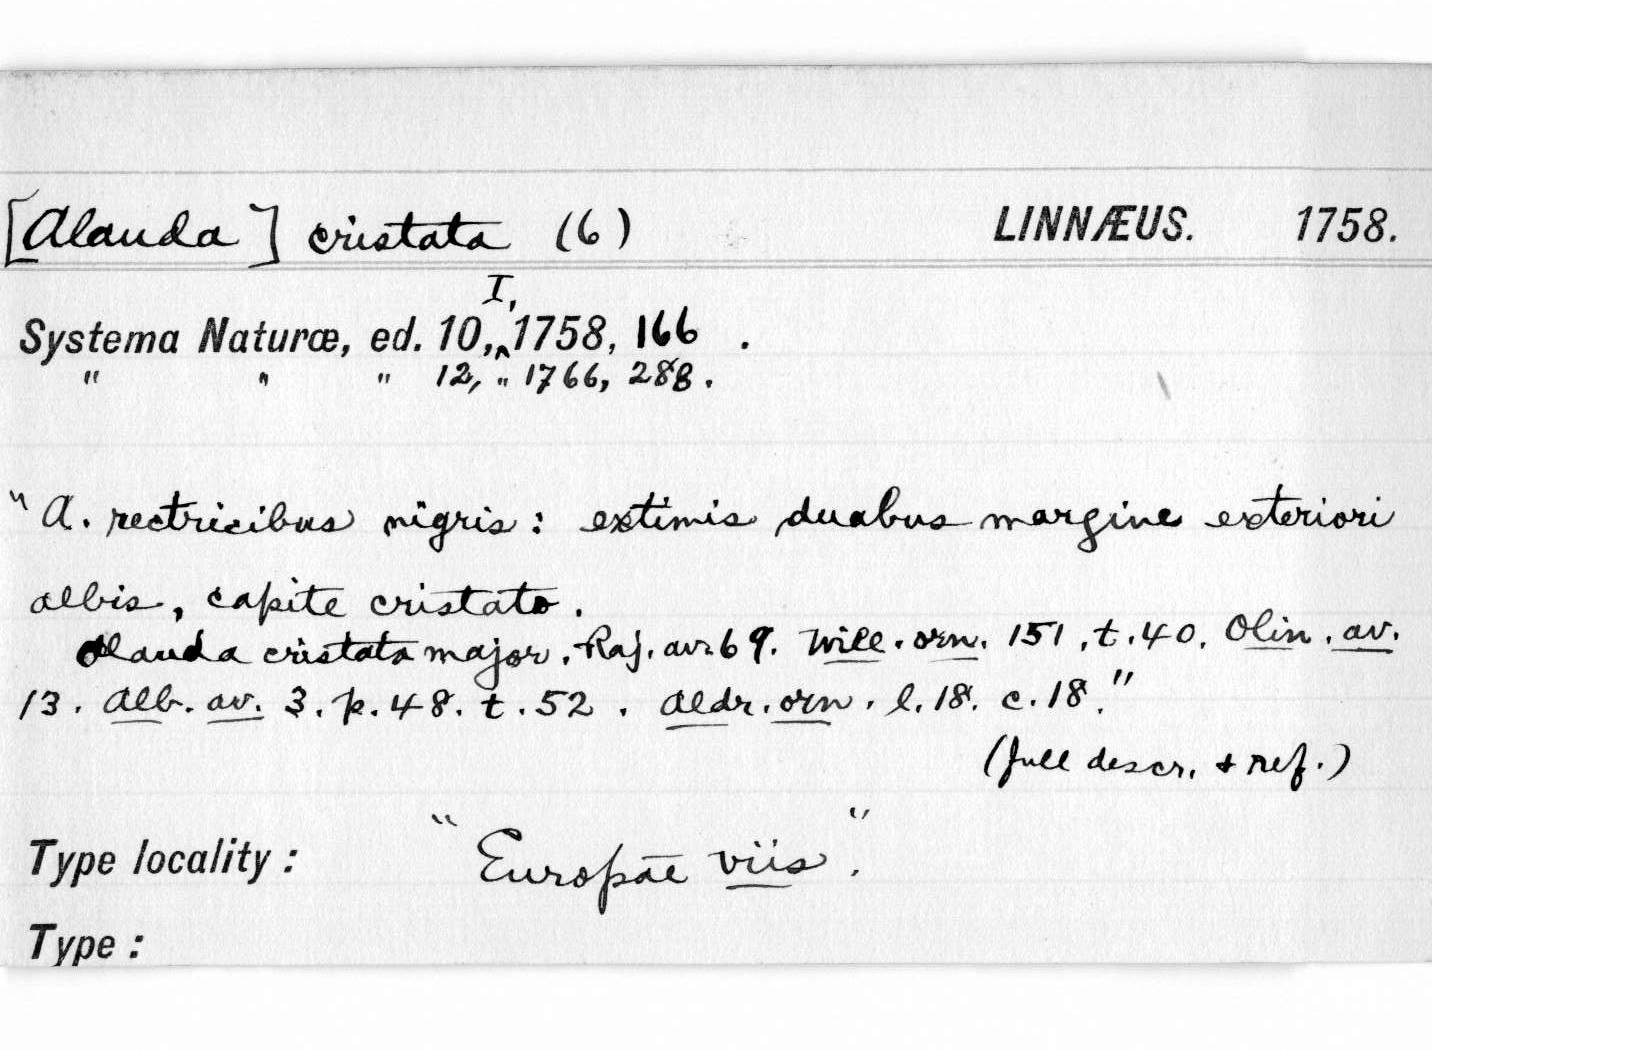 [Alauda] cristata (6) LINNÆUS. 1758.
I,
Systema Naturæ, ed. 10,‸1758, 166 .
" " " 12, " 1766, 288.
"A. rectricibus nigris: extimis duabus margine exteriori
albis, capite cristato.
Alauda cristata major. Raj. av. 69. Will. orn. 151, t. 40. Olin. av.
13. Alb. av. 3. p. 48. t. 52. Aldr. orn. l. 18. c. 18."
(full descr. & ref.)
Type locality: "Europae viis".
Type: